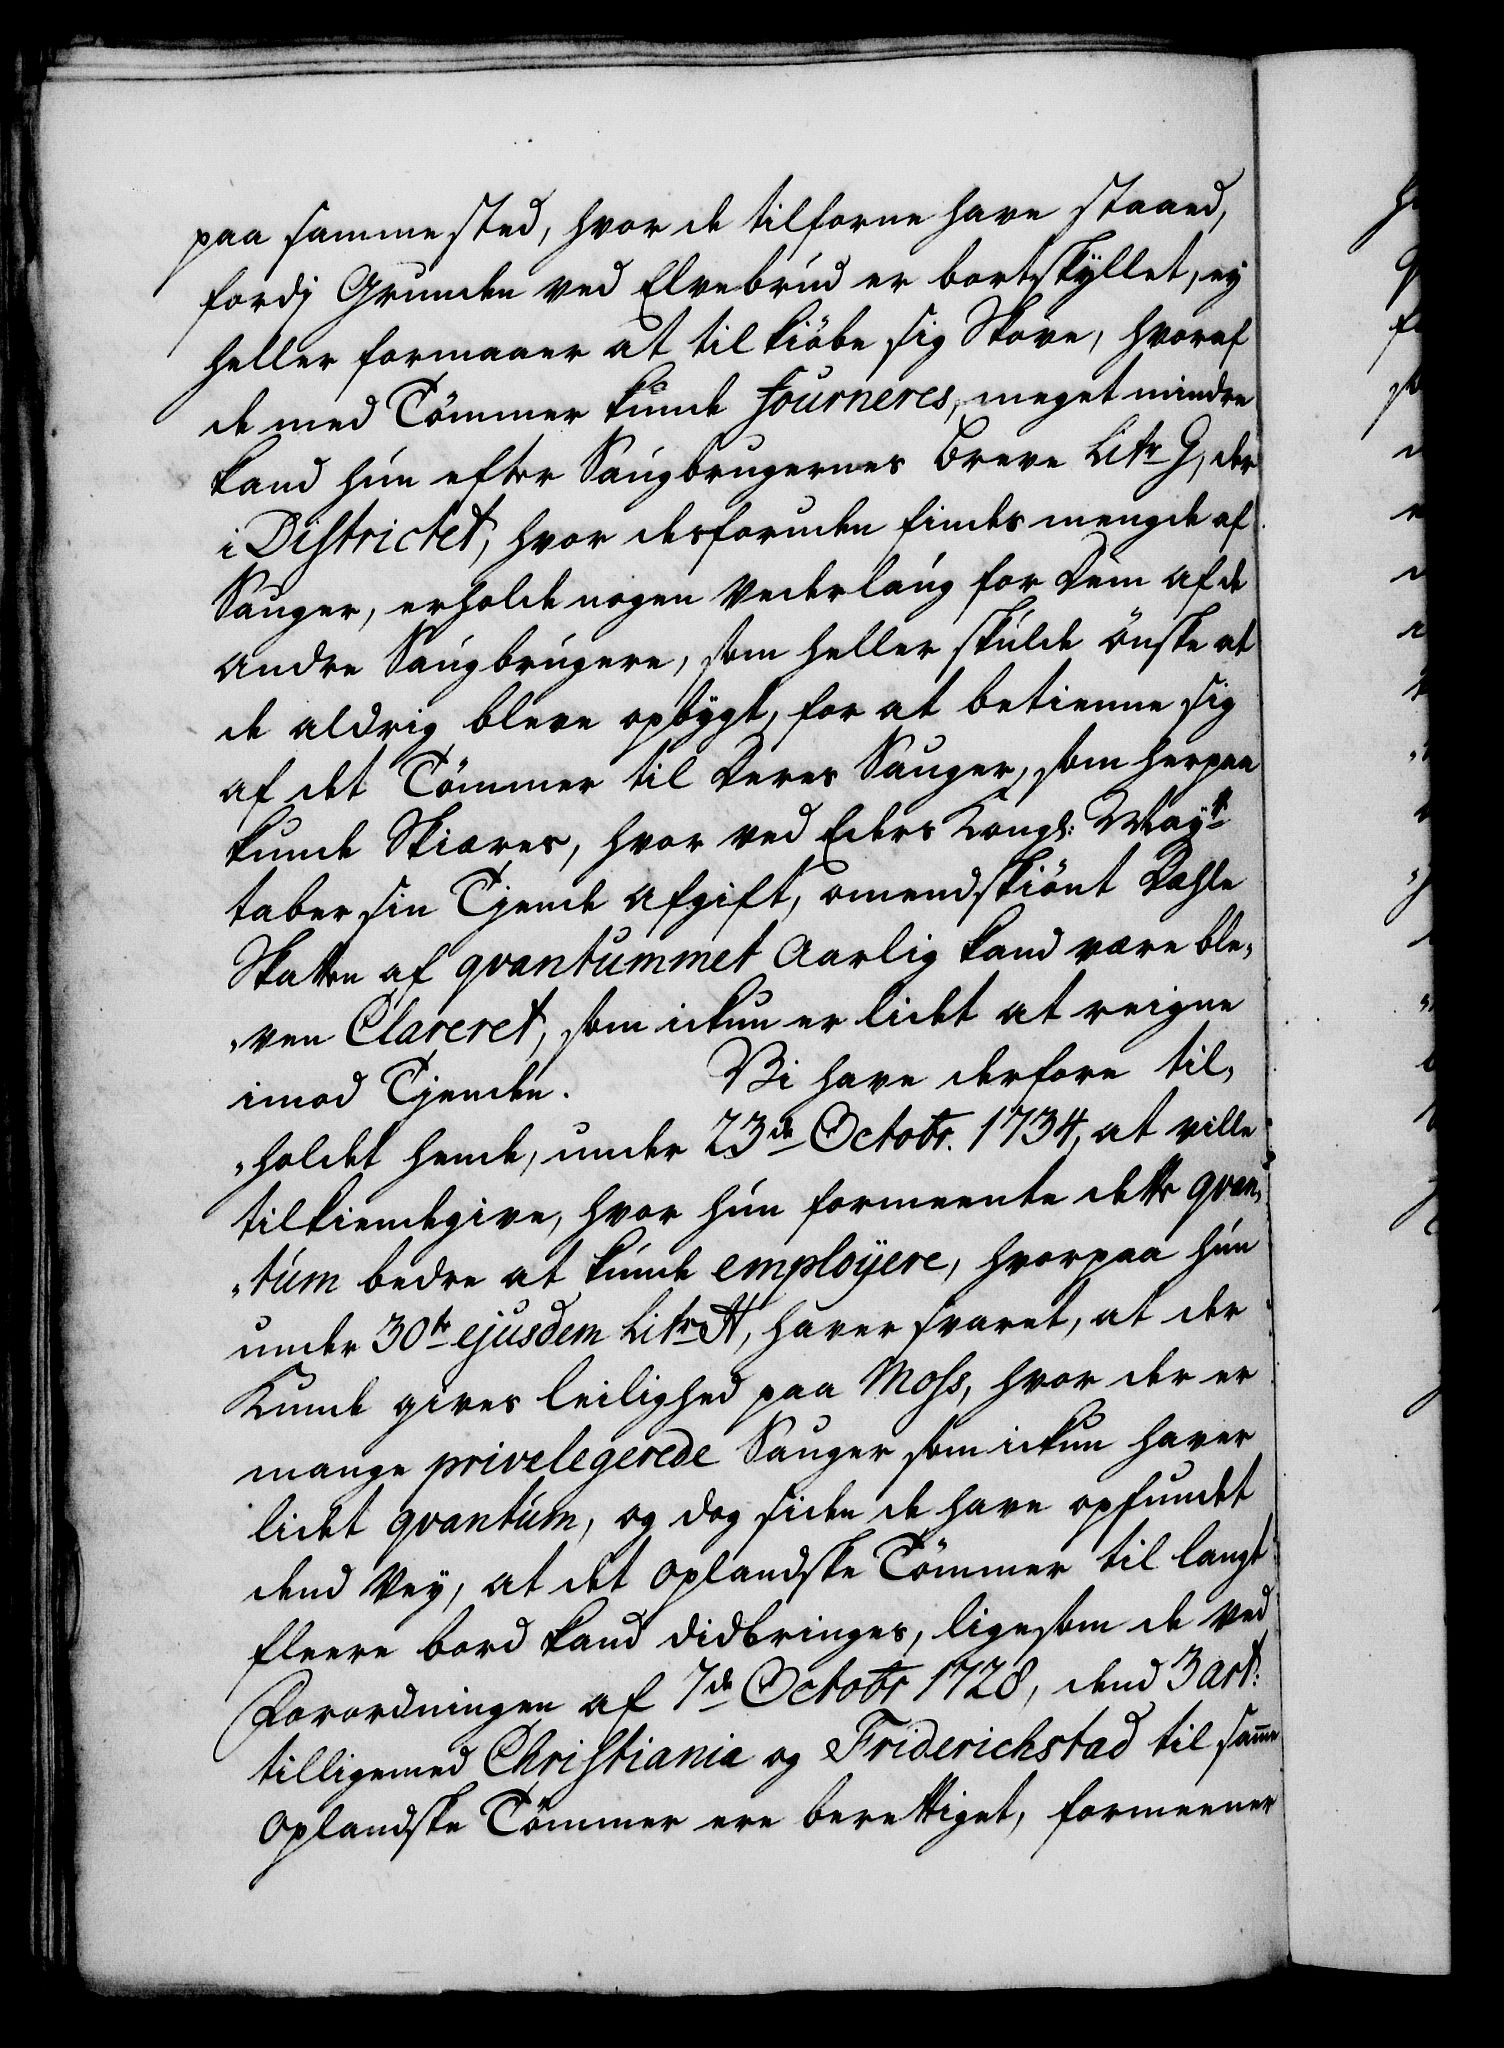 paa samme sted, hvor de tilforne have staaed,
fordj Grunden ved Elvebrud er bortskyllet, ej
heller formaaer at til kiöbe sig Skove, hvoraf
de med Tömmer kunde fourneres, meget mindre
kand hun efter Saugbrugernes breve Litr G, der
i Districtet, hvor desforuden findes mengde af
Sauger, erholde nogen vederlaug for dem af de
andre Saugbrugere, som heller skulde önske at
de aldrig bleve opbygt, for at betienne sig
af det Tömmer til deres Sauger, som herpaa
kunde Skiæres, hvor ved Eders Kongl: Maytt
taber sin Tjende afgift, omendskiönt dæhle
Skatten af qvantummet aarlig kand være ble„
„ven Clareret, som ickun er lidet at reigne
imod Tjenden. Vi have derfore til„
„holdet hende, under 23de Octobr. 1734, at ville
tilkiendegive, hvor hun formeente dette qvan„
„tum bedre at kunde employere, hvorpaa hun
under 30te ejusdem Litr H, haver svaret, at der
Kunde gives leilighed paa Moss, hvor der er
mange privelegerede Sauger som ickun haver
lidet qvantum, og dog siden de have opfundet
dend Vey, at det oplandske Tömmer til langt
fleere bord kand didbringes, ligesom de ved
Forordningen af 7de Octobr 1728, dend 3 art:
tilligemed Christiania og Friderichstad til samme
oplandske Tömmer ere berettiget, formeener